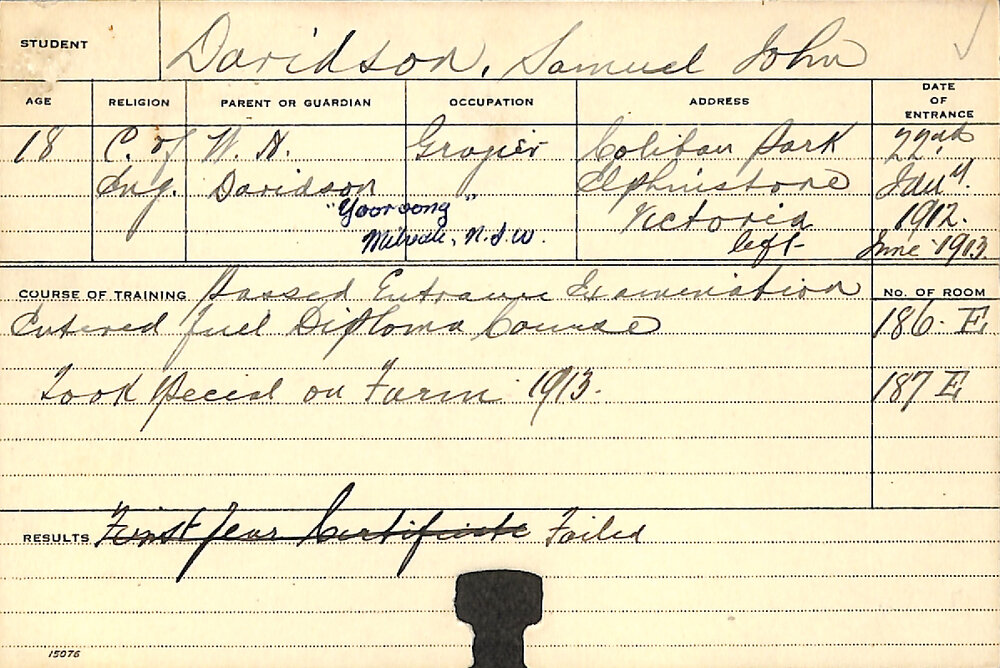 STUDENT Davidson, Samuel John
AGE RELIGION PARENT OR GUARDIAN OCCUPATION ADDRESS DATE OF ENTRANCE
18 C. of W. N. Grazier Coliban Park 22nd
Eng. Davidson Elphinstone Jan'y.
"Yooroong" Victoria 1912.
N.S.W. left June 1913.
COURSE OF TRAINING Passed Entrance Examination NO. OF ROOM
Entered full Diploma Course 186. E
Took special on Farm 1913. 187 E
RESULTS First Year Certificate Failed
15076